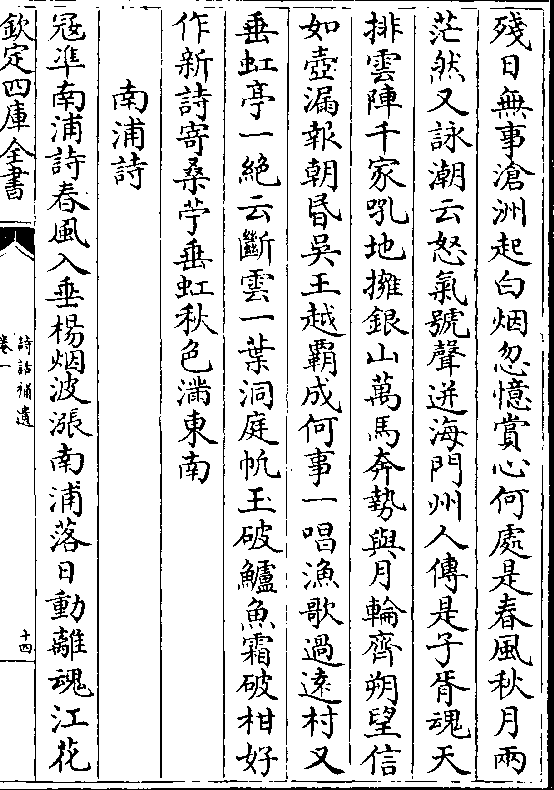 殘日無事滄洲起白烟忽憶賞心何處是春風秋月兩
茫然又詠潮云怒氣號聲迸海門州人傳是子胥魂天
排雲陣千家吼地擁銀山萬馬奔勢與月輪齊朔望信
如壺漏報朝昏吳王越霸成何事一唱漁歌過遠村又
垂虹亭一絶云斷雲一葉洞庭帆玉破鱸魚霜破柑好
作新詩寄桑苧垂虹秋色滿東南
南浦詩
冦準南浦詩春風入垂楊烟波漲南浦落日動離魂江花
欽定四庫全書
詩話補遺
卷一
十四